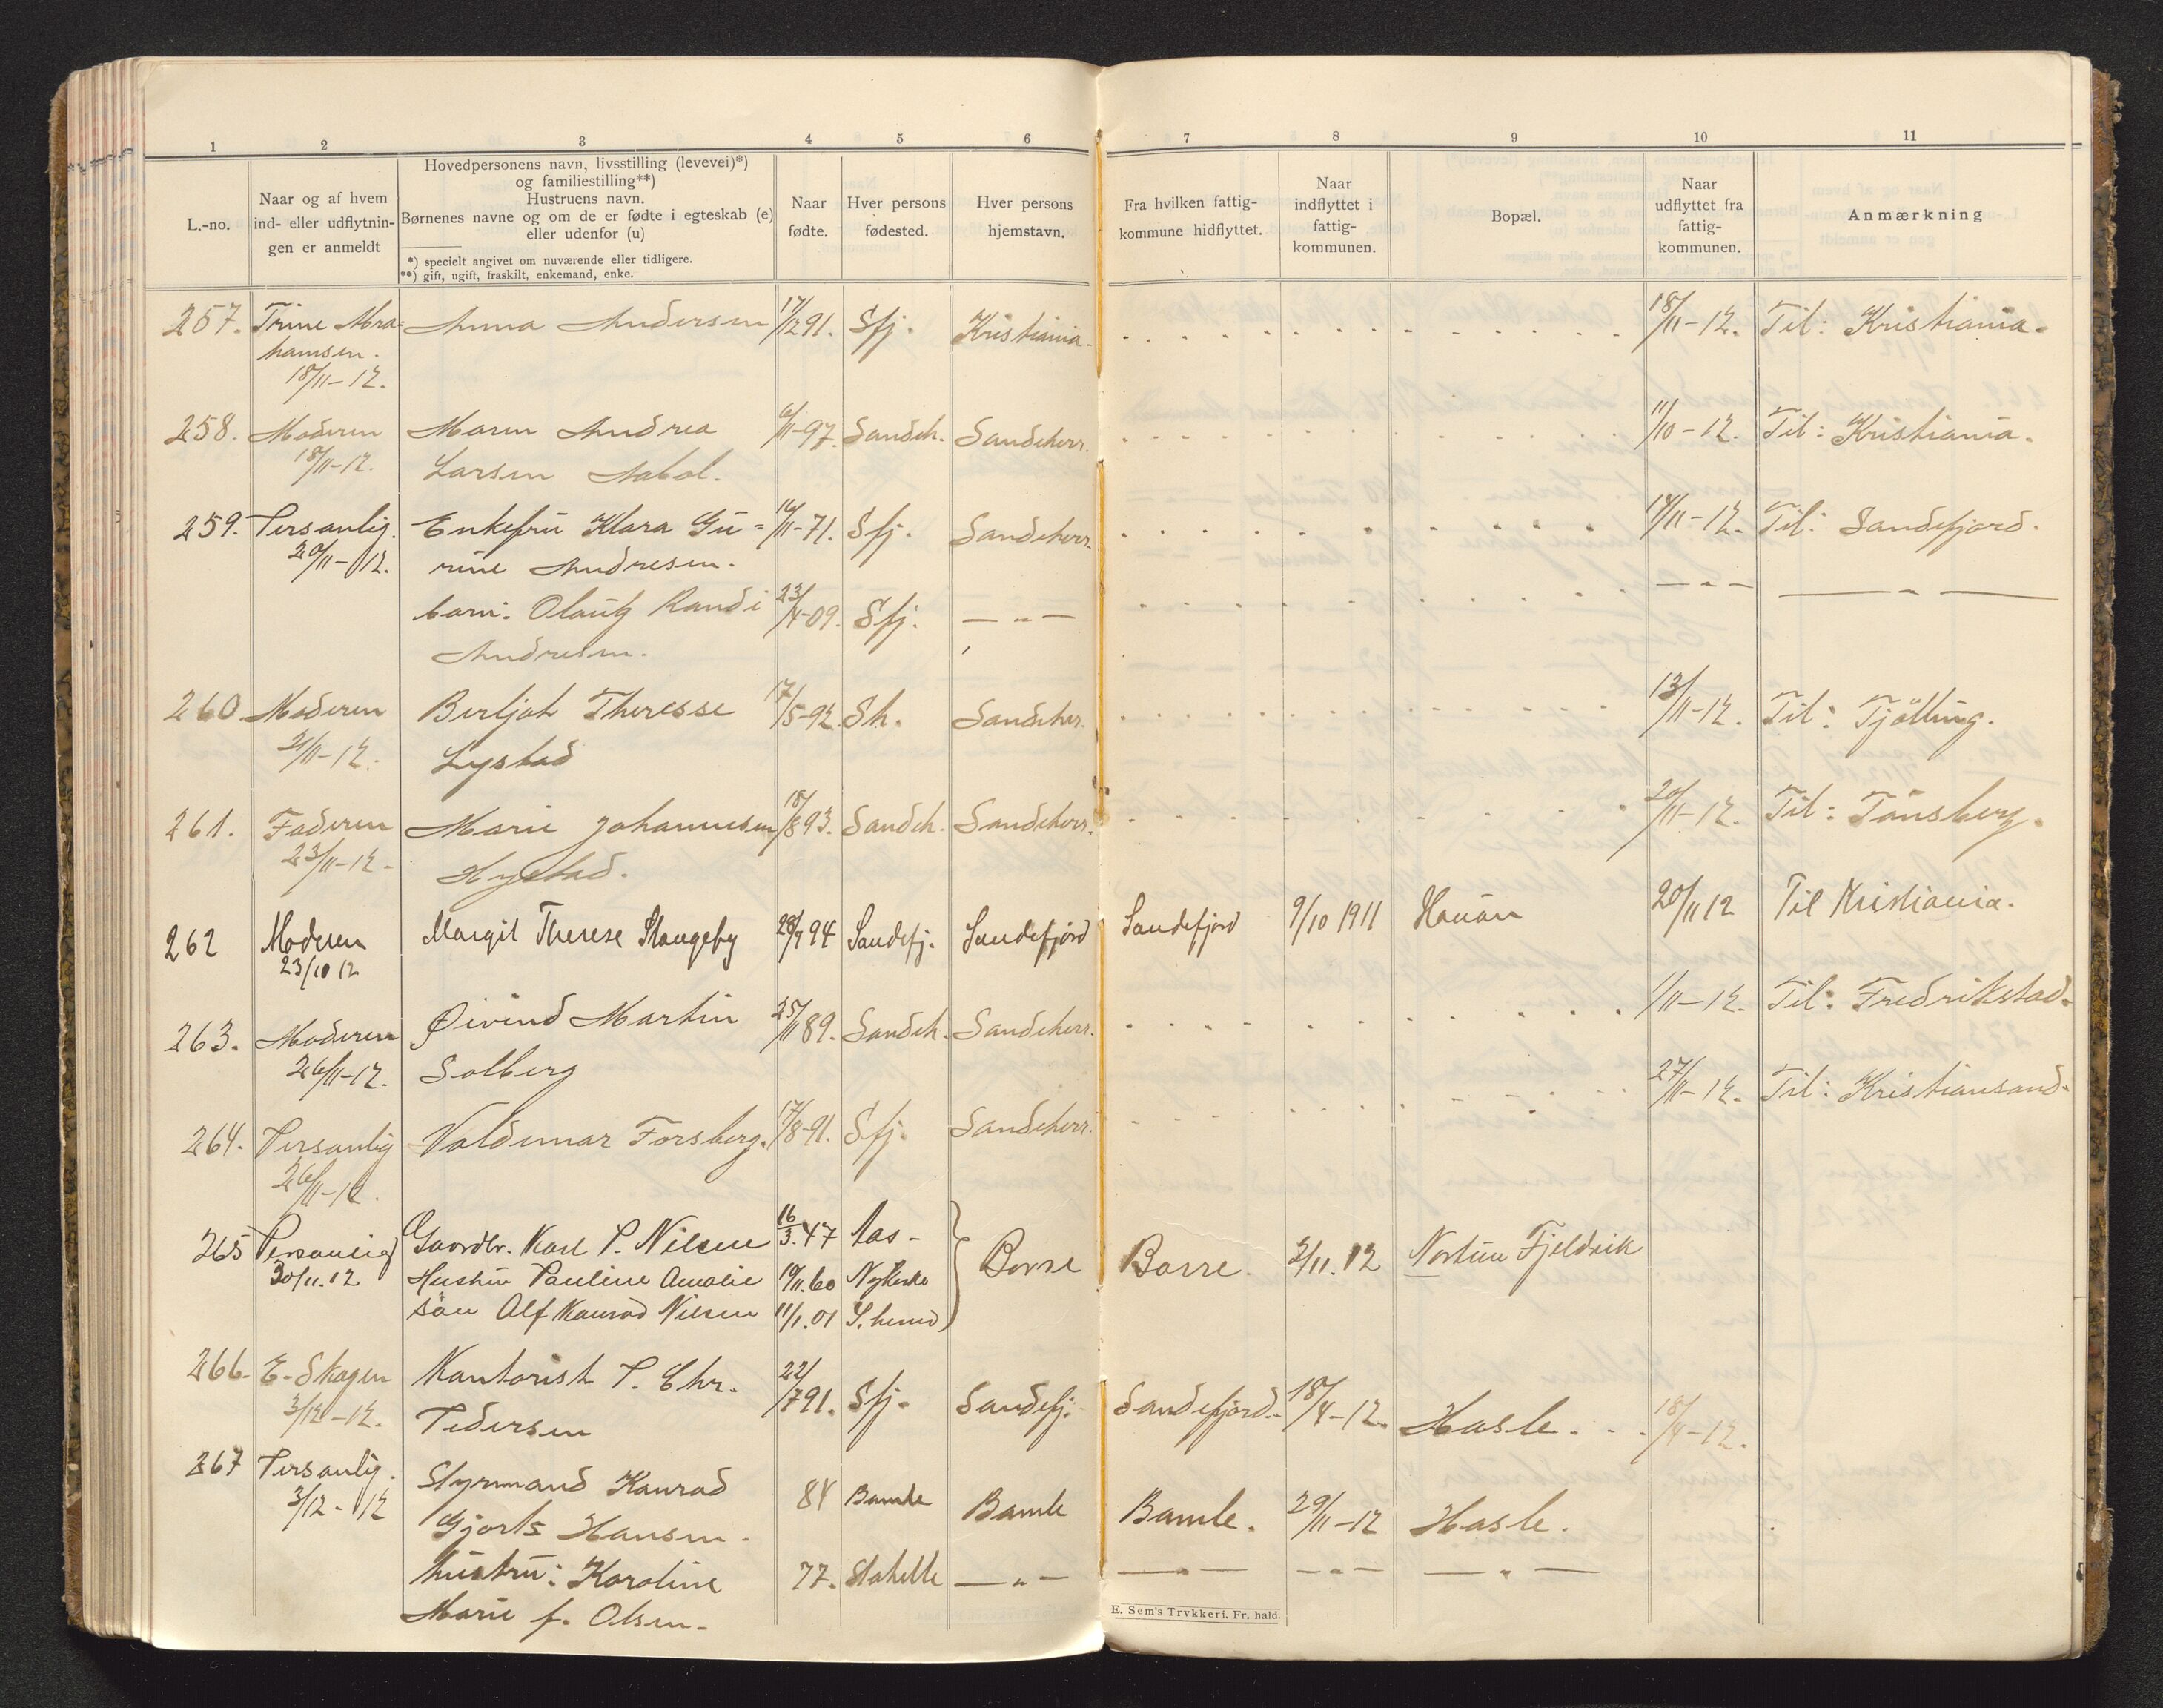 1 2 3 4 5 6 7 8 9 10 11
L.-no.
Naar og af hvem
ind- eller udflytnin-
gen er anmeldt
Hovedpersonens navn, livsstilling (levevei)*)
og familiestilling**)
Hustruens navn.
Børnenes navne og om de er fødte i egteskab (e)
eller udenfor (u)
*) specielt angivet om nuværende eller tidligere.
**) gift, ugift, fraskilt, enkemand, enke.
Naar
fødte.
Hver persons
fødested.
Hver persons
hjemstavn.
Fra hvilken fattig-
kommune hidflyttet.
Naar
indflyttet i
fattig-
kommunen.
Bopæl.
Naar
udflyttet fra
fattig-
kommunen.
Anmærkning
257. Trine Abra= Anna Andersen 17/12 91. Sfj. Kristiania. 18/11-12. Til: Kristiania.
hamsen.
18/11-12.
258. Moderen Maren Andrea 6/11-97. Sandeh. Sandeherr. 11/10-12. Til: Kristiania.
18/11-12. Larsen
259. Personlig. Enkefru Klara Gu= 16/11-71. Sfj. Sandeherr. 14/11-12. Til: Sandefjord.
20/11-12. rine Andresen.
barn: Olaug Randi 23/4-09. Sfj. —"— —"— —"—
Andresen.
260 Moderen Berljot Theresse 17/5-92. Sh. Sandeher. 13/11-12. Til: Tjølling.
21/11-12. Lystad
261. Faderen Marie Johannesen 18/8 93. Sandeh. Sandeherr. 20/11-12. Til: Tønsberg.
23/11-12. Hystad.
262 Moderen Margit Therese Stangeby 28/9 94 Sandefj. Sandefjord Sandefjord 9/10 1911 Hauan 20/11 12 Til Kristiania.
23/10 12
263. Moderen Øivind Martin 25/11 89. Sandeh. Sandeherr. 1/11-12. Til: Fredrikstad.
26/11-12. Solberg
264. Personlig Valdemar Forsberg. 17/8-91. Sfj. Sandeherr. 27/11-12. Til: Kristiansand.
26/11-12.
265 Personlig Gaardbr. Karl P. Nilsen 16/3.47 Aas- Borre Borre 2/11.12 Nortun Fjeldvik
30/11.12 Hustru Pauline Amalie 19/11.60 Nykirke
søn Alf Konrad Nilsen 11/1.01 S.herred
266. E. Skagen Kontorist P. Chr. 22/7 91. Sfj. Sandefj. Sandefjord. 18/4-12. Hasle. 18/4-12.
3/12-12. Pedersen
267 Personlig. Styrmand Konrad 84 Bamle Bamle Bamle. 29/11-12 Hasle.
3/12-12 Gjorts Hansen.
hustru: Karoline 77. Stathelle —"— —"— —"— —"—
Marie f. Olsen.
E. Sem's Trykkeri. Fr. hald.